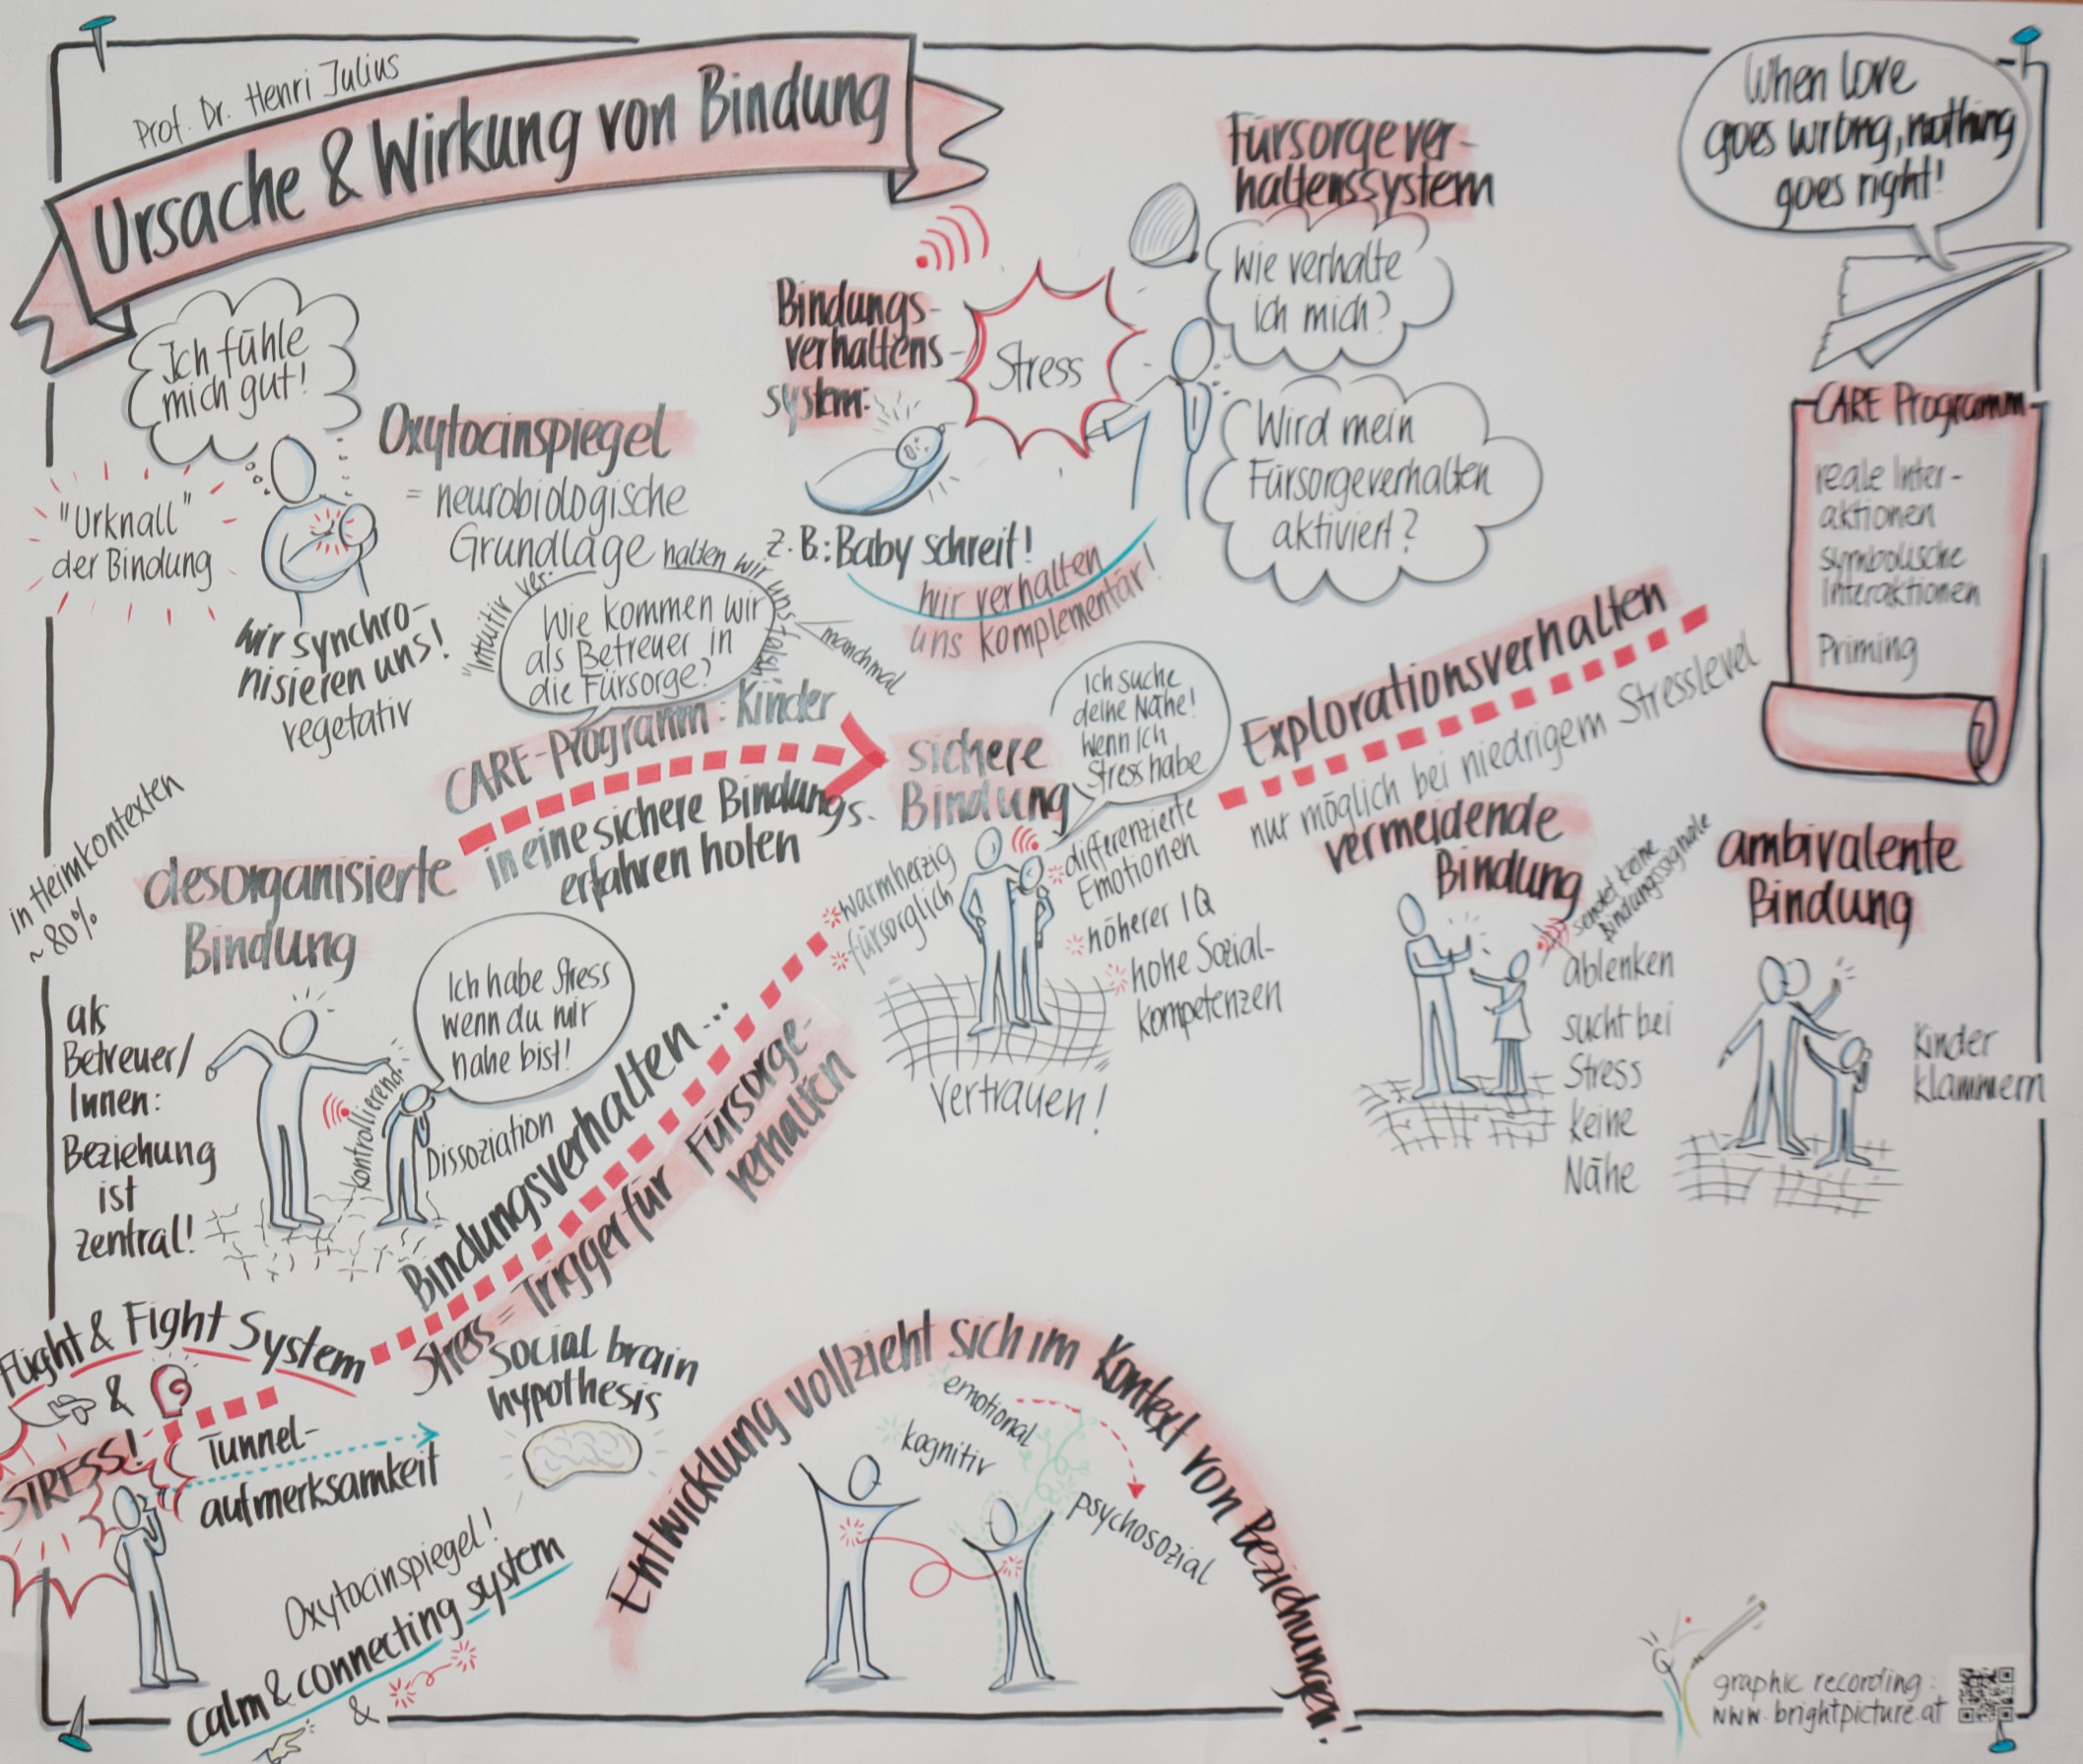 Prof. Dr. Henri Julius
Ursache & Wirkung von Bindung
Ich fühle
mich gut!
"Urknall"
der Bindung
wir synchro-
nisieren uns!
vegetativ
Oxytocinspiegel
= neurobiologische
Grundlage
Bindungs-
verhaltens-
system:
Stress
z.B.: Baby schreit!
wir verhalten
uns komplementär!
Fürsorgever-
haltenssystem
Wie verhalte
ich mich?
Wird mein
Fürsorgeverhalten
aktiviert?
When love
goes wrong, nothing
goes right!
CARE Programm
reale Inter-
aktionen
symbolische
Interaktionen
Priming
"Intuitiv ver-
halten wir uns falsch"
manchmal
Wie kommen wir
als Betreuer in
die Fürsorge?
CARE-Programm: Kinder
in eine sichere Bindungs-
erfahren holen
in Heimkontexten
~ 80%
desorganisierte
Bindung
als
Betreuer/
Innen:
Beziehung
ist
zentral!
Ich habe Stress
wenn du mir
nahe bist!
kontrollierend
Dissoziation
sichere
Bindung
Ich suche
deine Nähe!
Wenn ich
Stress habe
warmherzig
fürsorglich
differenzierte
Emotionen
höherer IQ
hohe Sozial-
kompetenzen
Vertrauen!
Explorationsverhalten
nur möglich bei niedrigem Stresslevel
vermeidende
Bindung
sendet keine
Bindungssignale
ablenken
sucht bei
Stress
keine
Nähe
ambivalente
Bindung
Kinder
klammern
Bindungsverhalten...
Stress = Trigger für Fürsorge-
verhalten
Flight & Fight System
&
STRESS!
Tunnel-
aufmerksamkeit
Social brain
hypothesis
Oxytocinspiegel!
calm & connecting system
&
Entwicklung vollzieht sich im Kontext von Beziehungen!
emotional
kognitiv
psychosozial
graphic recording:
www.brightpicture.at